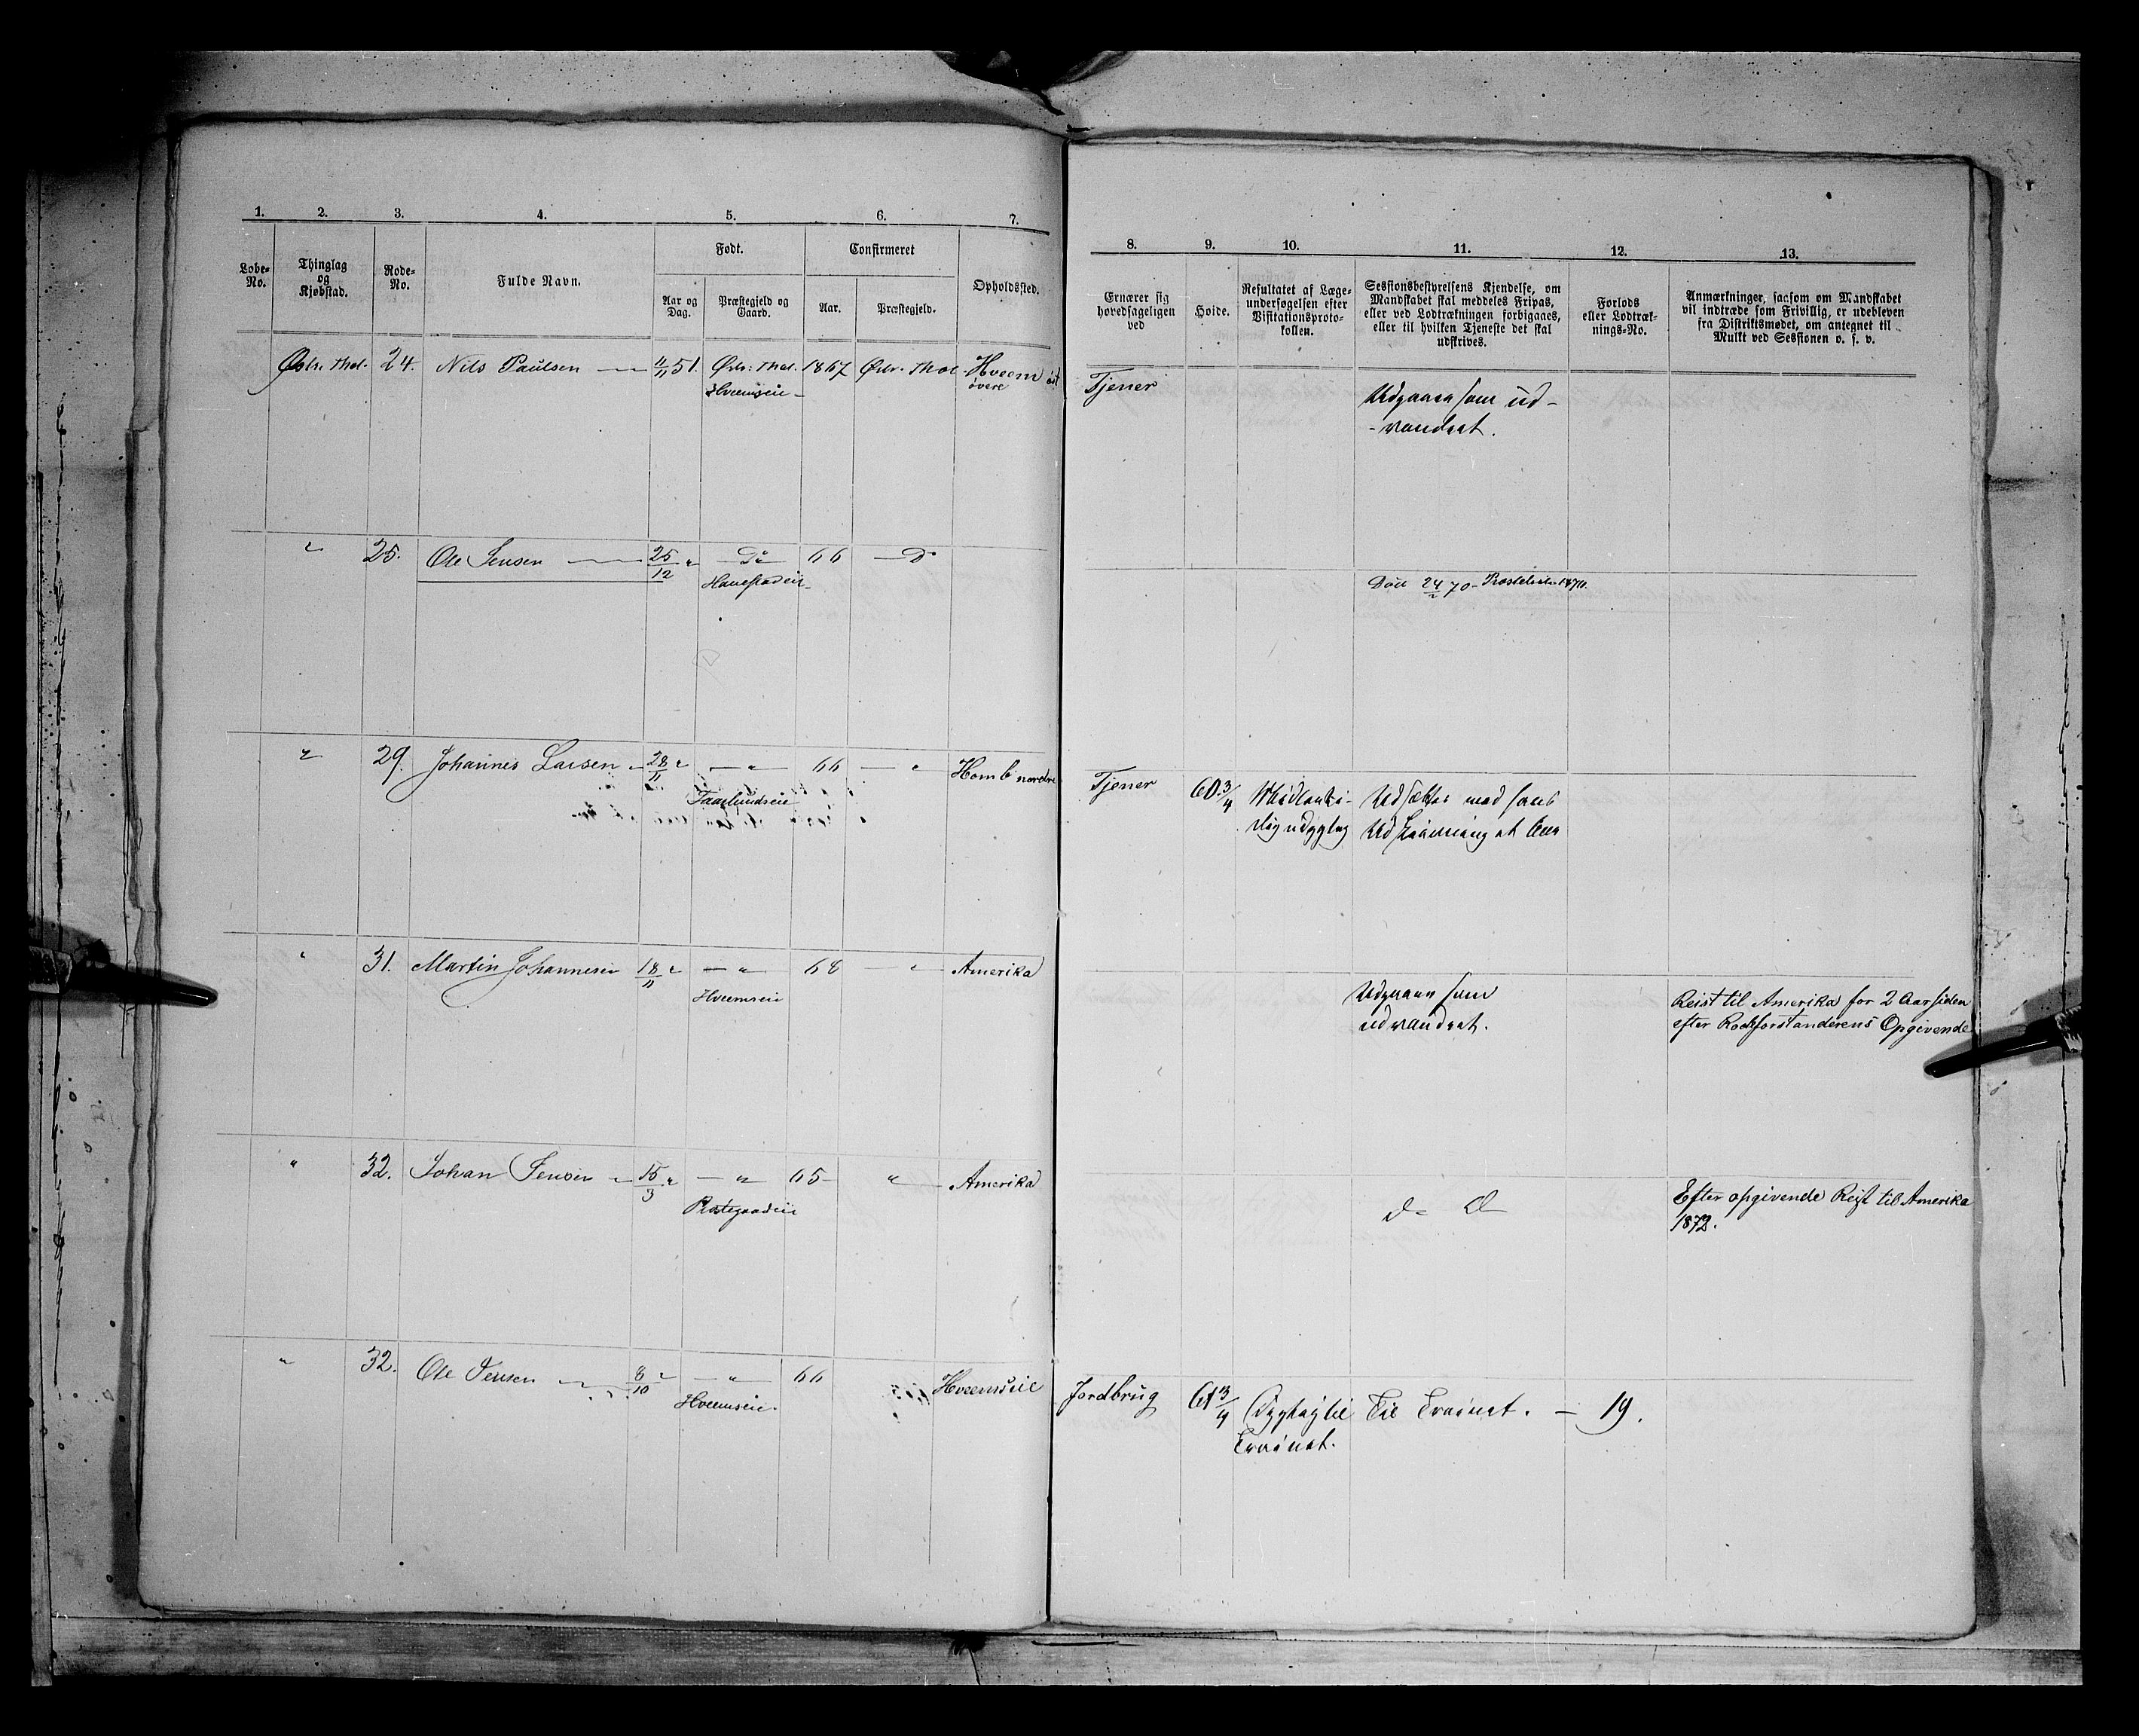 1. 2. 3. 4. 5. 6. 7.
Løbe-No. Thinglag og Kjøbstad. Rode-No. Fulde Navn. Født. Confirmeret Opholdssted.
Aar og Dag. Præstegjeld og Gaard. Aar. Præstegjeld.
Østr. Thot. 24. Nils Paulsen 4/11 51. Østr. Thot. 1867 Østr. Thot Hveem øst
Hveemseie øvere
" 25. Ole Jensen 25/12 " Do 66 Do
Hanestadeie
" 29. Johannes Larsen 28/11 " — " — 66 — " Homb nordre
Taarlundseie
" 31. Martin Johannesen 18/11 " — " — 68 — " — Amerika
Hveemseie
" 32. Johan Jensen 15/3 " — " — 65 — " — Amerika
Præstegaardeie
" 32. Ole Jensen 8/10 " — " — 66 Hveemseie
Hveemseie.
8. 9. 10. 11. 12. 13.
Ernærer sig hovedsageligen ved Høide. Resultatet af Lægeundersøgelsen efter Visitationsprotokollen. Sessionsbestyrelsens Kjendelse, om Mandskabet skal meddeles Fripas, eller ved Lodtrækningen forbigaaes, eller til hvilken Tjeneste det skal udskrives. Forlods eller Lodtræknings-No. Anmærkninger, saasom om Mandskabet vil indtræde som Frivillig, er udebleven fra Distriktsmødet, om antegnet til Mulkt ved Sessionen o. s. v.
Tjener Udgaaen som ud-
-vandret.
Død 24/2 70
Tjener 60 3/4 Midlerti- Udsættes med
dig udygtig Udskrivning et Aar
Udgaaen som Reist til Amerika for 2 Aar siden
udvandret. efter Rodeforstanderens Opgivende
do Do Efter opgivende Reist til Amerika
1872.
Jordbrug 61 3/4 Dygtig til Til Trainet. — 19.
Trainet.